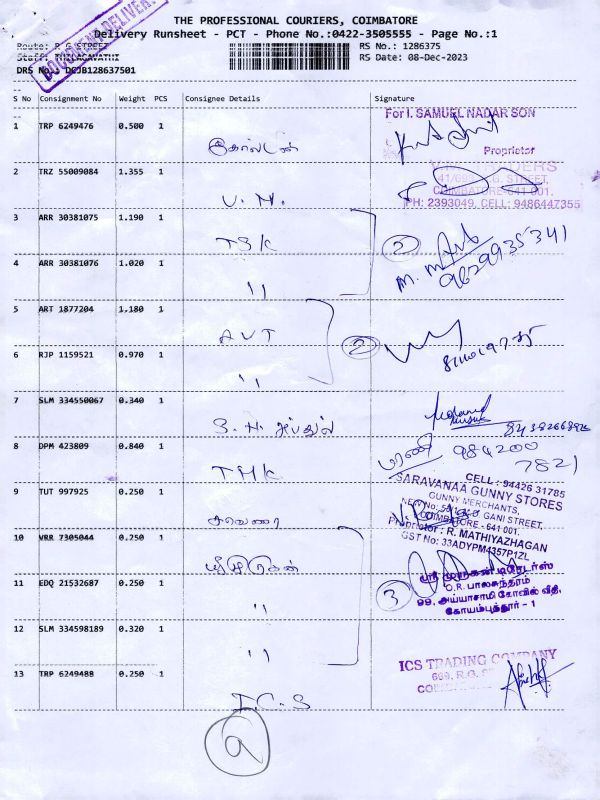 DOCUMENT DELIVER
THE PROFESSIONAL COURIERS, COIMBATORE
Delivery Runsheet - PCT - Phone No.:0422-3505555 - Page No.:1
Route: R G STREET
RS No.: 1286375
Staff: THILAGAVATHI
RS Date: 08-Dec-2023
DRS No.: DCJB128637501
S No Consignment No Weight PCS Consignee Details Signature
For I. SAMUEL NADAR SON
1 TRP 6249476 0.500 1
Proprietor
2 TRZ 55009084 1.355 1 V. N.
R.G. STREET,
COIMBATORE-641 001.
PH: 2393049, CELL: 9486447355
3 ARR 30381075 1.190 1 TSK
2
9629935341
4 ARR 30381076 1.020 1 "
5 ART 1877204 1.180 1 AVT
2
6 RJP 1159521 0.970 1 "
7 SLM 334550067 0.340 1 S. H. அப்துல்
8 DPM 423809 0.840 1 TMK
பரணி 984200
7821
CELL: 94426 31785
SARAVANAA GUNNY STORES
GUNNY MERCHANTS,
GANI STREET,
COIMBATORE - 641 001.
Proprietor : R. MATHIYAZHAGAN
GST No: 33ADYPM4357P1ZL
9 TUT 997925 0.250 1 சரவணா
10 VRR 7305044 0.250 1 ஸ்ரீமுருகன்
ஸ்ரீ முருகன் டிரேடர்ஸ்
O.R. பாலசுந்தரம்
99, அய்யாசாமி கோவில் வீதி,
கோயம்புத்தூர் - 1
3
11 EDQ 21532687 0.250 1 "
12 SLM 334598189 0.320 1 "
ICS TRADING COMPANY
669, R.G.
13 TRP 6249488 0.250 1 I.C.S
9